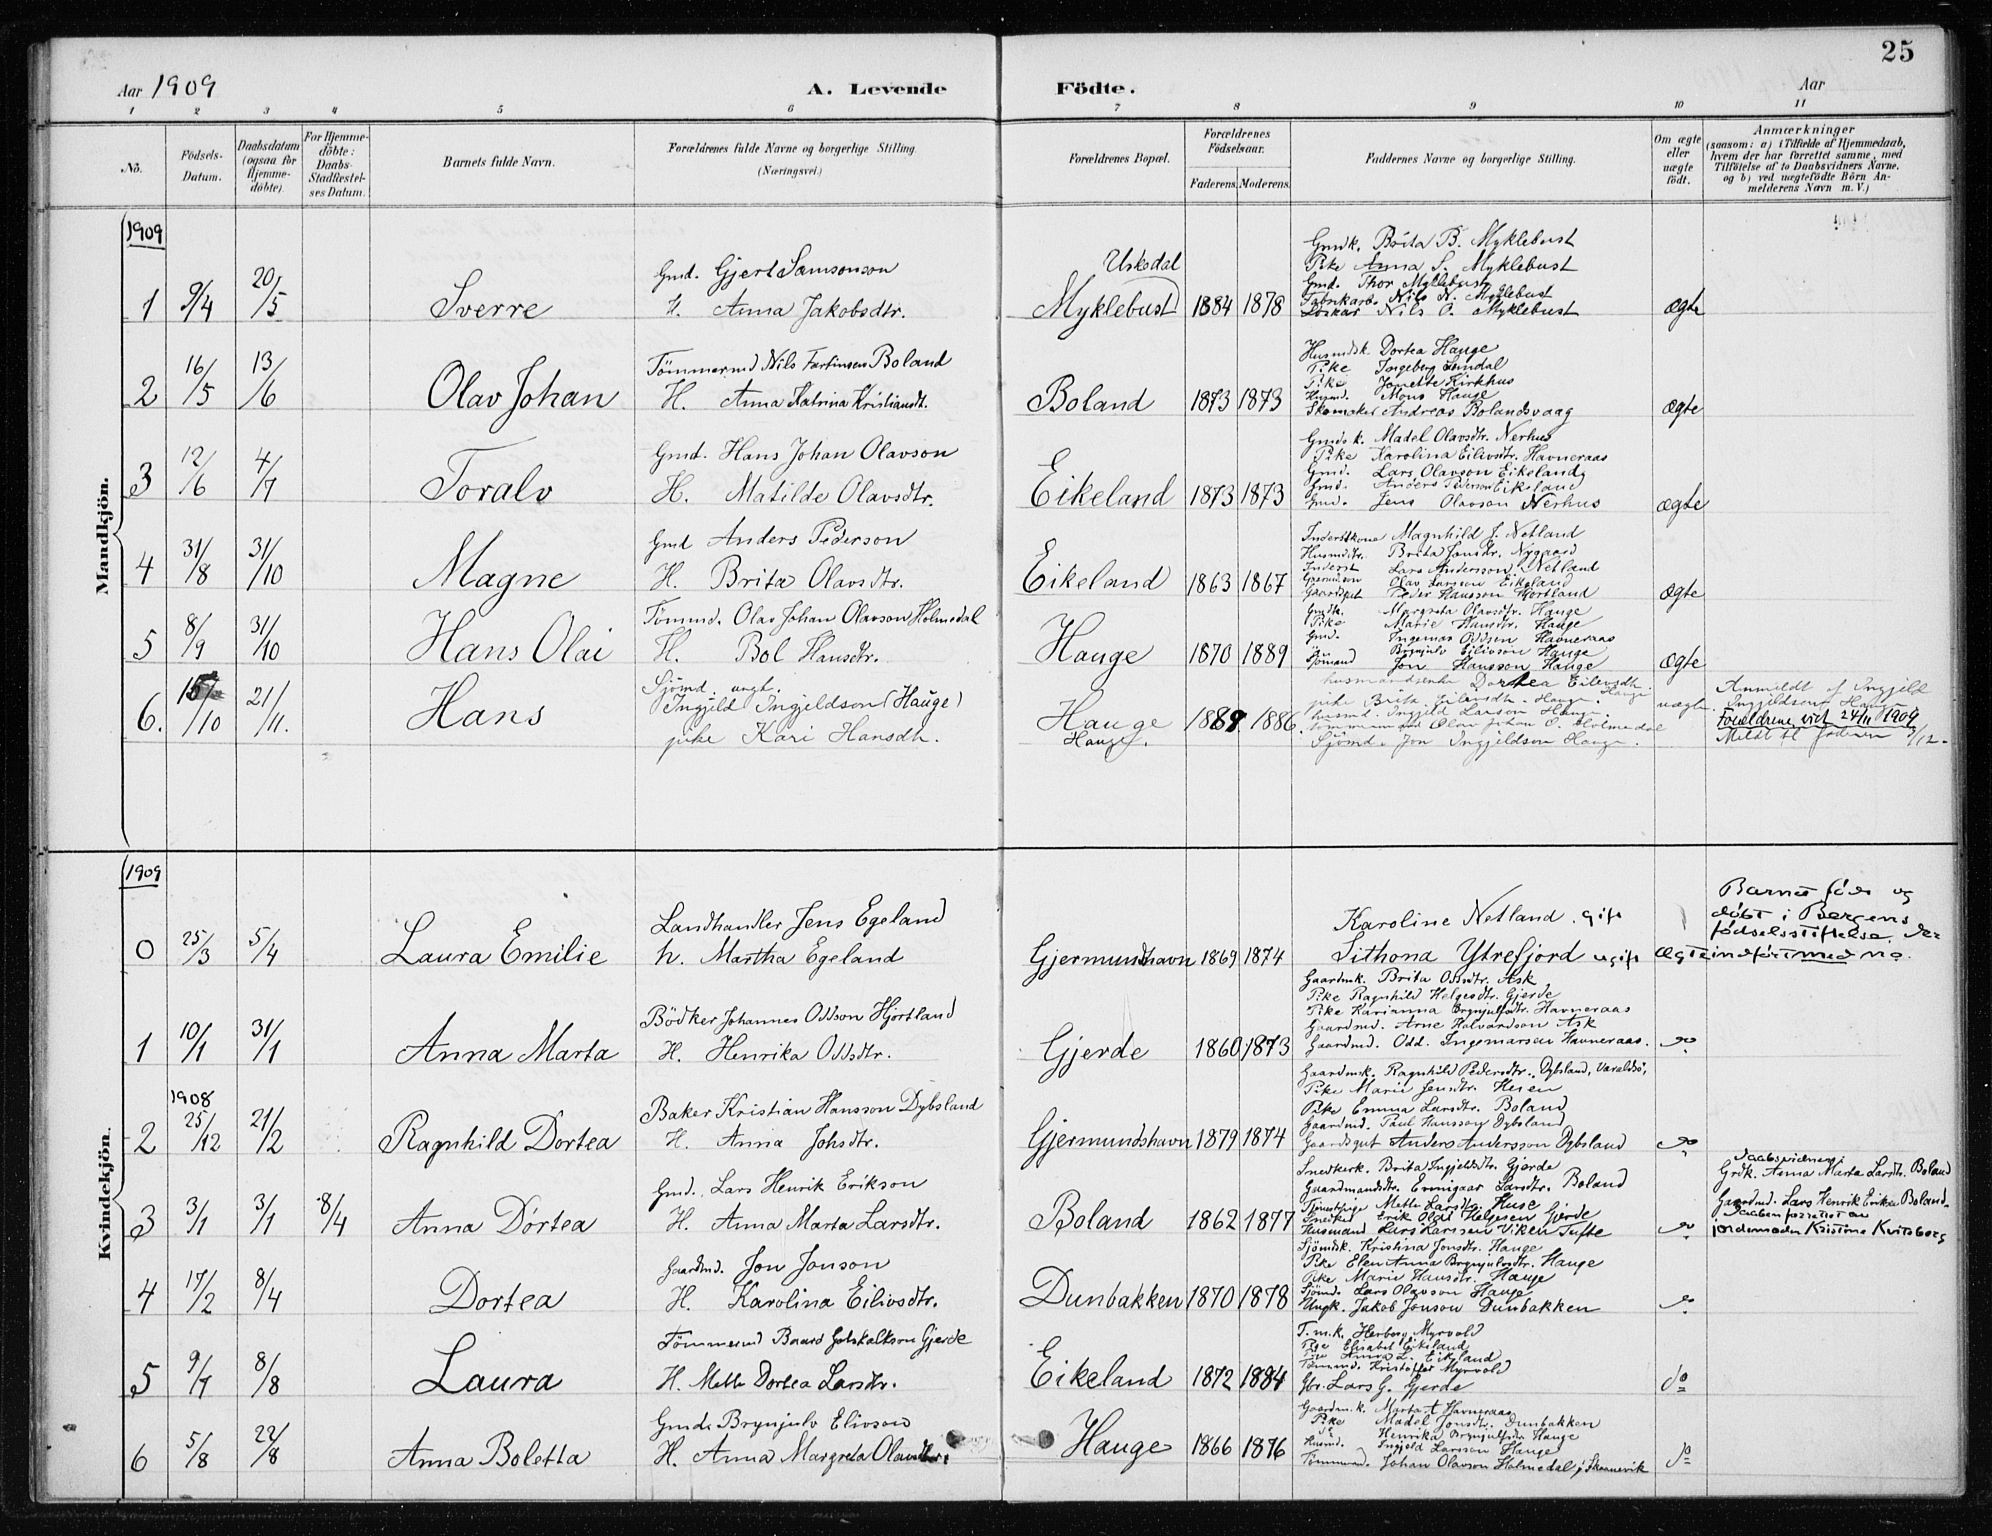 25
Aar 1909
A. Levende Födte.
Aar
1 2 3 4 5 6 7 8 9 10 11
No.
Födsels-Datum.
Daabsdatum (ogsaa for Hjemme-döbte).
For Hjemme-döbte: Daabs-Stadfæstel-ses Datum.
Barnets fulde Navn.
Forældrenes fulde Navne og borgerlige Stilling. (Næringsvei.)
Forældrenes Bopæl.
Forældrenes Födselsaar.
Faderens. Moderens.
Faddernes Navne og borgerlige Stilling.
Om ægte eller uægte født.
Anmærkninger
(saasom: a) i Tilfælde af Hjemmedaab,
hvem der har forrettet samme, med
Tilföielse af to Daabsvidners Navne.
og b) ved uægtefödte Börn An-
melderens Navn m. V.)
Mandkjön.
1909
1 9/4 20/5 Sverre
Gmd. Gjert Samsonson
H. Anna Jakobsdtr.
Uskedal
Myklebust 1884 1878
Gmdk. Brita B. Myklebust
Pike Anna S. Myklebust
Gmd. Thor Myklebust
Fabrikarb. Nils N. Myklebust
Nils O. Myklebust
ægte
2 16/5 13/6 Olav Johan
Tömmermd Nils Boland
H. Anna Katrina Kristiansdt.
Boland 1873 1873
Husmdsk. Dortea Hauge
Pike Ingeborg
Pike Jonette Kirkhus
Husmd. Mons Hauge
Skomaker Andreas Bolandsvaag
ægte
3 12/6 4/7 Toralv
Gmd. Hans Johan Olavson
H. Matilde Olavsdtr.
Eikeland 1873 1873
Gmds k. Madel Olavsdtr. Nerhus
Pike Karolina Eilivsdtr. Havneraas
Gmd. Lars Olavson Eikeland
Gmd. Anders Pederson Eikeland
Gmd. Jens Olavson Nerhus
ægte
4 31/8 31/10 Magne
Gmd Anders Pederson
H. Brita Olavsdtr.
Eikeland 1863 1867
Inderstkone Magnhild J. Netland
Husmdtr. Brita Jonsdtr. Nygaard
Inderst Lars Andersson Netland
Olav Larsson Eikeland
Gaardsgut Peder Hansson Hjortland
ægte
5 8/9 31/10 Hans Olai
Tömmd. Olav Johan Olavson Holmedal
H. Bol Hansdtr.
Hauge 1870 1889
Gmdk. Margreta Olavsdtr. Hauge
Pike Marie Hansdtr. Hauge
Gmd. Ingemar Oddsen Havneraas
Brynjulv Eilivson Hauge
Sjömand Jon Hansson Hauge
ægte
6. 15/10 21/11. Hans
Sjömd. ungk.
Ingjeld Ingjeldson (Hauge)
pike Kari Hansdtr.
Hauge 1889. 1886.
Hauge.
husmandsenke Dortea Eilevsdtr. Hauge
pike Brita Eilevsdtr. Hauge.
husmd. Ingjeld Larsson Hauge.
tömmermand Olav Johan O. Holmedal
Sjömd. Jon Ingjeldson Hauge.
uægte
Anmeldt af Ingjeld
Ingjeldsen Hauge
Forældrene viet 24/11 1909
Meldt til 3/12.
Kvindekjön.
1909
0 25/3 5/4 Laura Emilie
Landhandler Jens Egeland
h. Martha Egeland
Gjermundshavn 1869 1874
Karoline Netland. gift
Sithona Ytrefjord ugift
Ægte
Barnet født og
døbt i Bergens
fødselsstiftelse.
indført med no.
1 10/1 31/1 Anna Marta
Bödker Johannes Oddson Hjortland
H. Henrika Oddsdtr.
Gjerde 1860 1873
Gaardmk. Brita Oddsdtr. Ask
Pike Ragnhild Helgesdtr. Gjerde
Pike Karianna Brynjulfsdtr. Havneraas
Gaardmd. Arne Halvardson Ask
Gaardmd. Odd. Ingemarsen Havneraas.
do
2 1908 25/12 21/2 Ragnhild Dortea
Baker Kristian Hansson Dybsland
H. Anna Johsdtr.
Gjermundshavn 1879 1874
Gaardmk. Ragnhild Pedersdtr. Dybsland, Varaldsö,
Pike Marie Jensdtr. Heien
Pike Emma Larsdtr. Boland
Gaardmd. Paul Hansson Dybsland
Gaardsgut Anders Andersson Dybsland
do
3 3/1 3/1 8/4 Anna Dortea
Gmd. Lars Henrik Erikson
H. Anna Marta Larsdtr.
Boland 1862 1877
Snedkerk. Brita Ingjeldsdtr. Gjerde
Gaardmandsdtr. Ermigaar Larsdtr. Boland
Tjenestpige Mette Larsdtr. Huse
Snedker Erik Olai Helgesen Gjerde
Husmand Lars Larssen Viken Tufte
do
Daabsvidner:
Grdk. Anna Marta Larsdtr. Boland
Gaardmd. Lars Henrik Eriksen Boland.
Daaben forrettet av
jordemoder Kristine Kvitsberg
4 17/2 8/4 Dortea
Gaardmd. Jon Jonson
H. Karolina Eilivsdtr.
Dunbakken 1870 1878
Sjömdsk. Kristina Jonsdtr. Hauge
Pike Elen Anna Brynjulvsdtr. Hauge
Pike Marie Hansdtr. Hauge
Sjömd. Lars Olavson Hauge
Ungk. Jakob Jonson Dunbakken
do
5 9/7 8/8 Laura
Tömmermd Baard Gotskalkson Gjerde
H. Mette Dortea Larsdtr.
Eikeland 1872 1884
T.m.k. Herborg Myrvold
Pige Elisabet Eikeland
Pige Anna L. Eikeland
Tömmmd. Kristoffer Myrvold
Gbr. Lars G. Gjerde
do
6 5/8 22/8 Anna Boletta
Gmd. Brynjulv Elivson
H. Anna Margreta Olavsdtr.
Hauge 1866 1876
Gaardm.k. Marta Havneraas
Pike Madel Jonsdtr. Dunbakken
Henrika Brynjulfsdtr. Hauge
Husmd. Ingjeld Larsson Hauge
Tömmermd. Johan Olavson Holmedal i Skaanevik
do